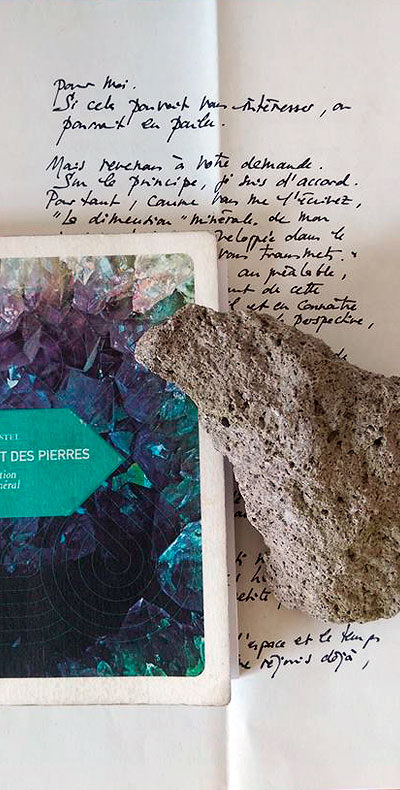 pour moi.
Si cela pouvait vous intéresser, on
pourrait en parler.
Mais revenons à votre demande.
Sur le principe, je suis d'accord.
Pourtant, comme vous me l'écrivez,
"La dimension "minérale de mon
veloppée dans le
vous transmets.
au préalable,
de cette
il et en connaître
perspective,
de
NTEL
T DES PIERRES
tion
néral
petite
l'espace et le temps
me réjouis déjà,